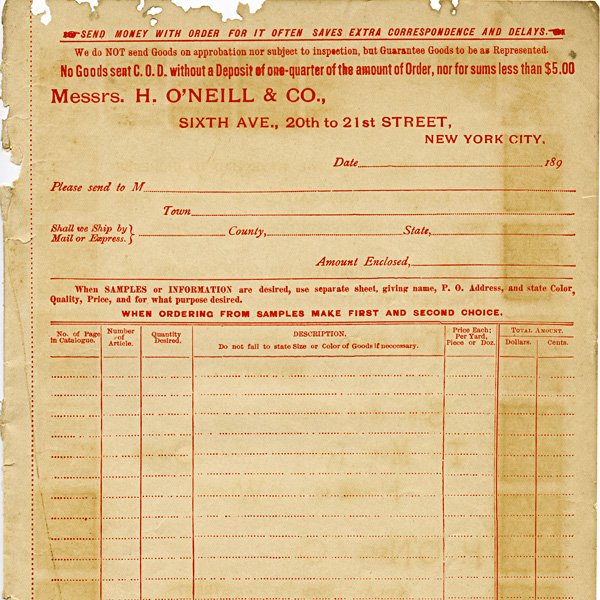 SEND MONEY WITH ORDER FOR IT OFTEN SAVES EXTRA CORRESPONDENCE AND DELAYS.
We do NOT send Goods on approbation nor subject to inspection, but Guarantee Goods to be as Represented.
No Goods sent C. O. D. without a Deposit of one-quarter of the amount of Order, nor for sums less than $5.00
Messrs. H. O'NEILL & CO.,
SIXTH AVE., 20th to 21st STREET,
NEW YORK CITY.
Date 189
Please send to M
Town
Shall we Ship by
Mail or Express. } County, State,
Amount Enclosed,
When SAMPLES or INFORMATION are desired, use separate sheet, giving name, P. O. Address, and state Color,
Quality, Price, and for what purpose desired.
WHEN ORDERING FROM SAMPLES MAKE FIRST AND SECOND CHOICE.
No. of Page
in Catalogue.
Number
of
Article.
Quantity
Desired.
DESCRIPTION.
Do not fail to state Size or Color of Goods if neccessary.
Price Each;
Per Yard,
Piece or Doz.
TOTAL AMOUNT.
Dollars. Cents.